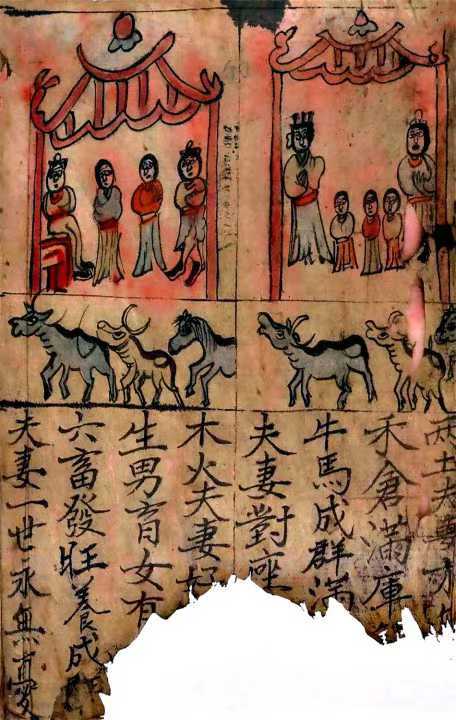 土夫妻
禾倉滿庫
牛馬成群滿
夫妻對座
木火夫妻
生男育女有
六畜發旺養成
夫妻一世永無憂